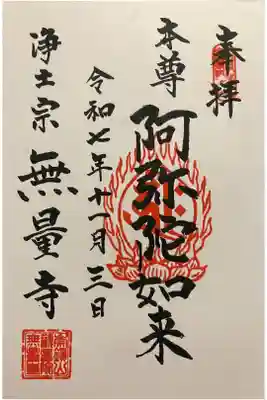 奉拝
本尊
阿弥陀如来
令和七年十一月三日
浄土宗 無量寺